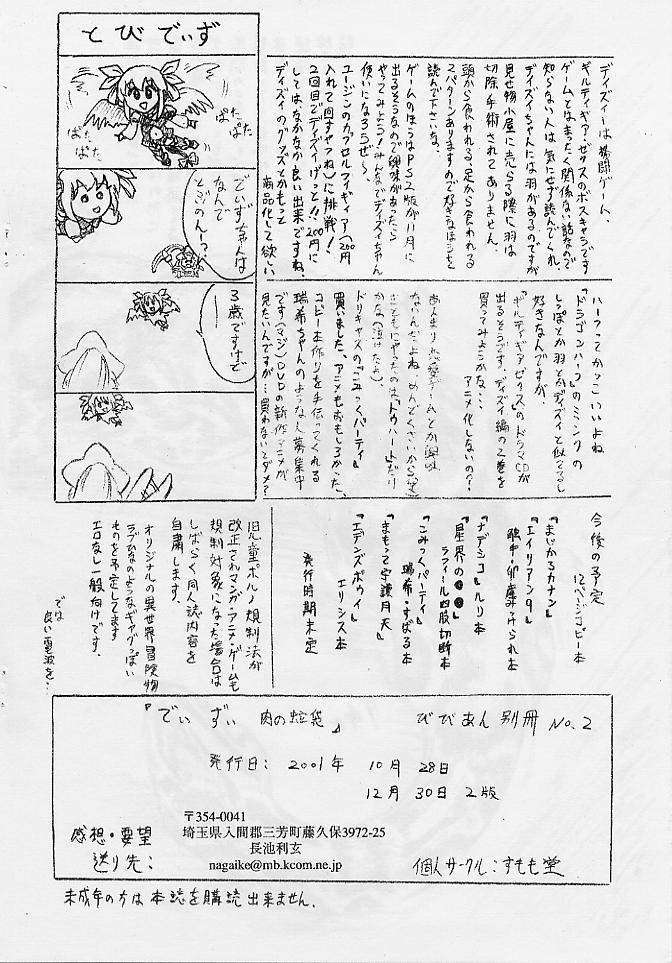 とびでぃず
ぱた
ぱた
ぱた
ぱた
でぃずぃちゃんは
なんで
とぶのんーっ?
3歳ですけど
ディズィーは格闘ゲーム、
ギルティギア・ゼクスのボスキャラです
ゲームとはまったく関係ない話なので
知らない人は気にせず読んでくれ。
ディズィちゃんには羽があるのですが
見せ物小屋に売らる際に羽は
切除手術されてありません。
頭から食われる、足から食われる
2パターンありますので好きなほうを
読んで下さいな。
ゲームのほうはPS2版が11月に
出るそうなので興味があったら
やってみよう!みんなでディズィちゃん
使いになろうぜ〜
ユージンのカプセルフィギィア(200円
入れて回すやつね)に挑戦!
2回目でディズィげっと!!200円に
してはなかなか良い出来ですね。
ディズィのグッズとかもって
商品化して欲しい。
ハーフってかっこいいよね
『ドラゴンハーフ』のミンクの
しっぽとか羽とかディズィと似てるし
好きなんですが、
『ギルティギアゼクス』のドラマCDが
出るそうです。ディズィ編の2巻を
買ってみようかな…
アニメ化しないの??
あんまり恋愛ゲームとか興味
ないんだよね。めんどくさいから(笑)
まともにやったのはトゥハートだけ
かな(泣けたよ)
ドリキャスの『こみっくパーティ』
買いました、アニメもおもしろかった。
コピー本作りを手伝ってくれる
瑞希ちゃんのような人募集中
です(マジ)DVDの新作アニメが
見たいんですが…買わないとダメ?
今後の予定
12ページコピー本
『まじかるカナン』
『エイリアン9』
触手・卵産みつけられ本
『ナデシコ』ルリ本
『星界の●●』
ラフィール四肢切断本
『こみっくパーティ』
瑞希・すばる本
『まもって守護月天』
『エデンズボゥイ』
エリシス本
発行時期未定
児童ポルノ規制法が
改正されマンガ・アニメ・ゲームも
規制対象になった場合は
しばらく同人誌内容を
自粛します。
オリジナルの異世界冒険物
ラブひなのようなギャグっぽい
ものを予定してます
エロなし一般向けです。
では
良い電波を…
『でぃずぃ 肉の蛭袋』 びびあん別冊 No.2
発行日: 2001年 10月 28日
12月 30日 2版
〒354-0041
埼玉県入間郡三芳町藤久保3972-25
長池利玄
nagaike@mb.kcom.ne.jp
感想・要望
送り先:
個人サークル:すもも堂
未成年の方は本誌を購読出来ません.